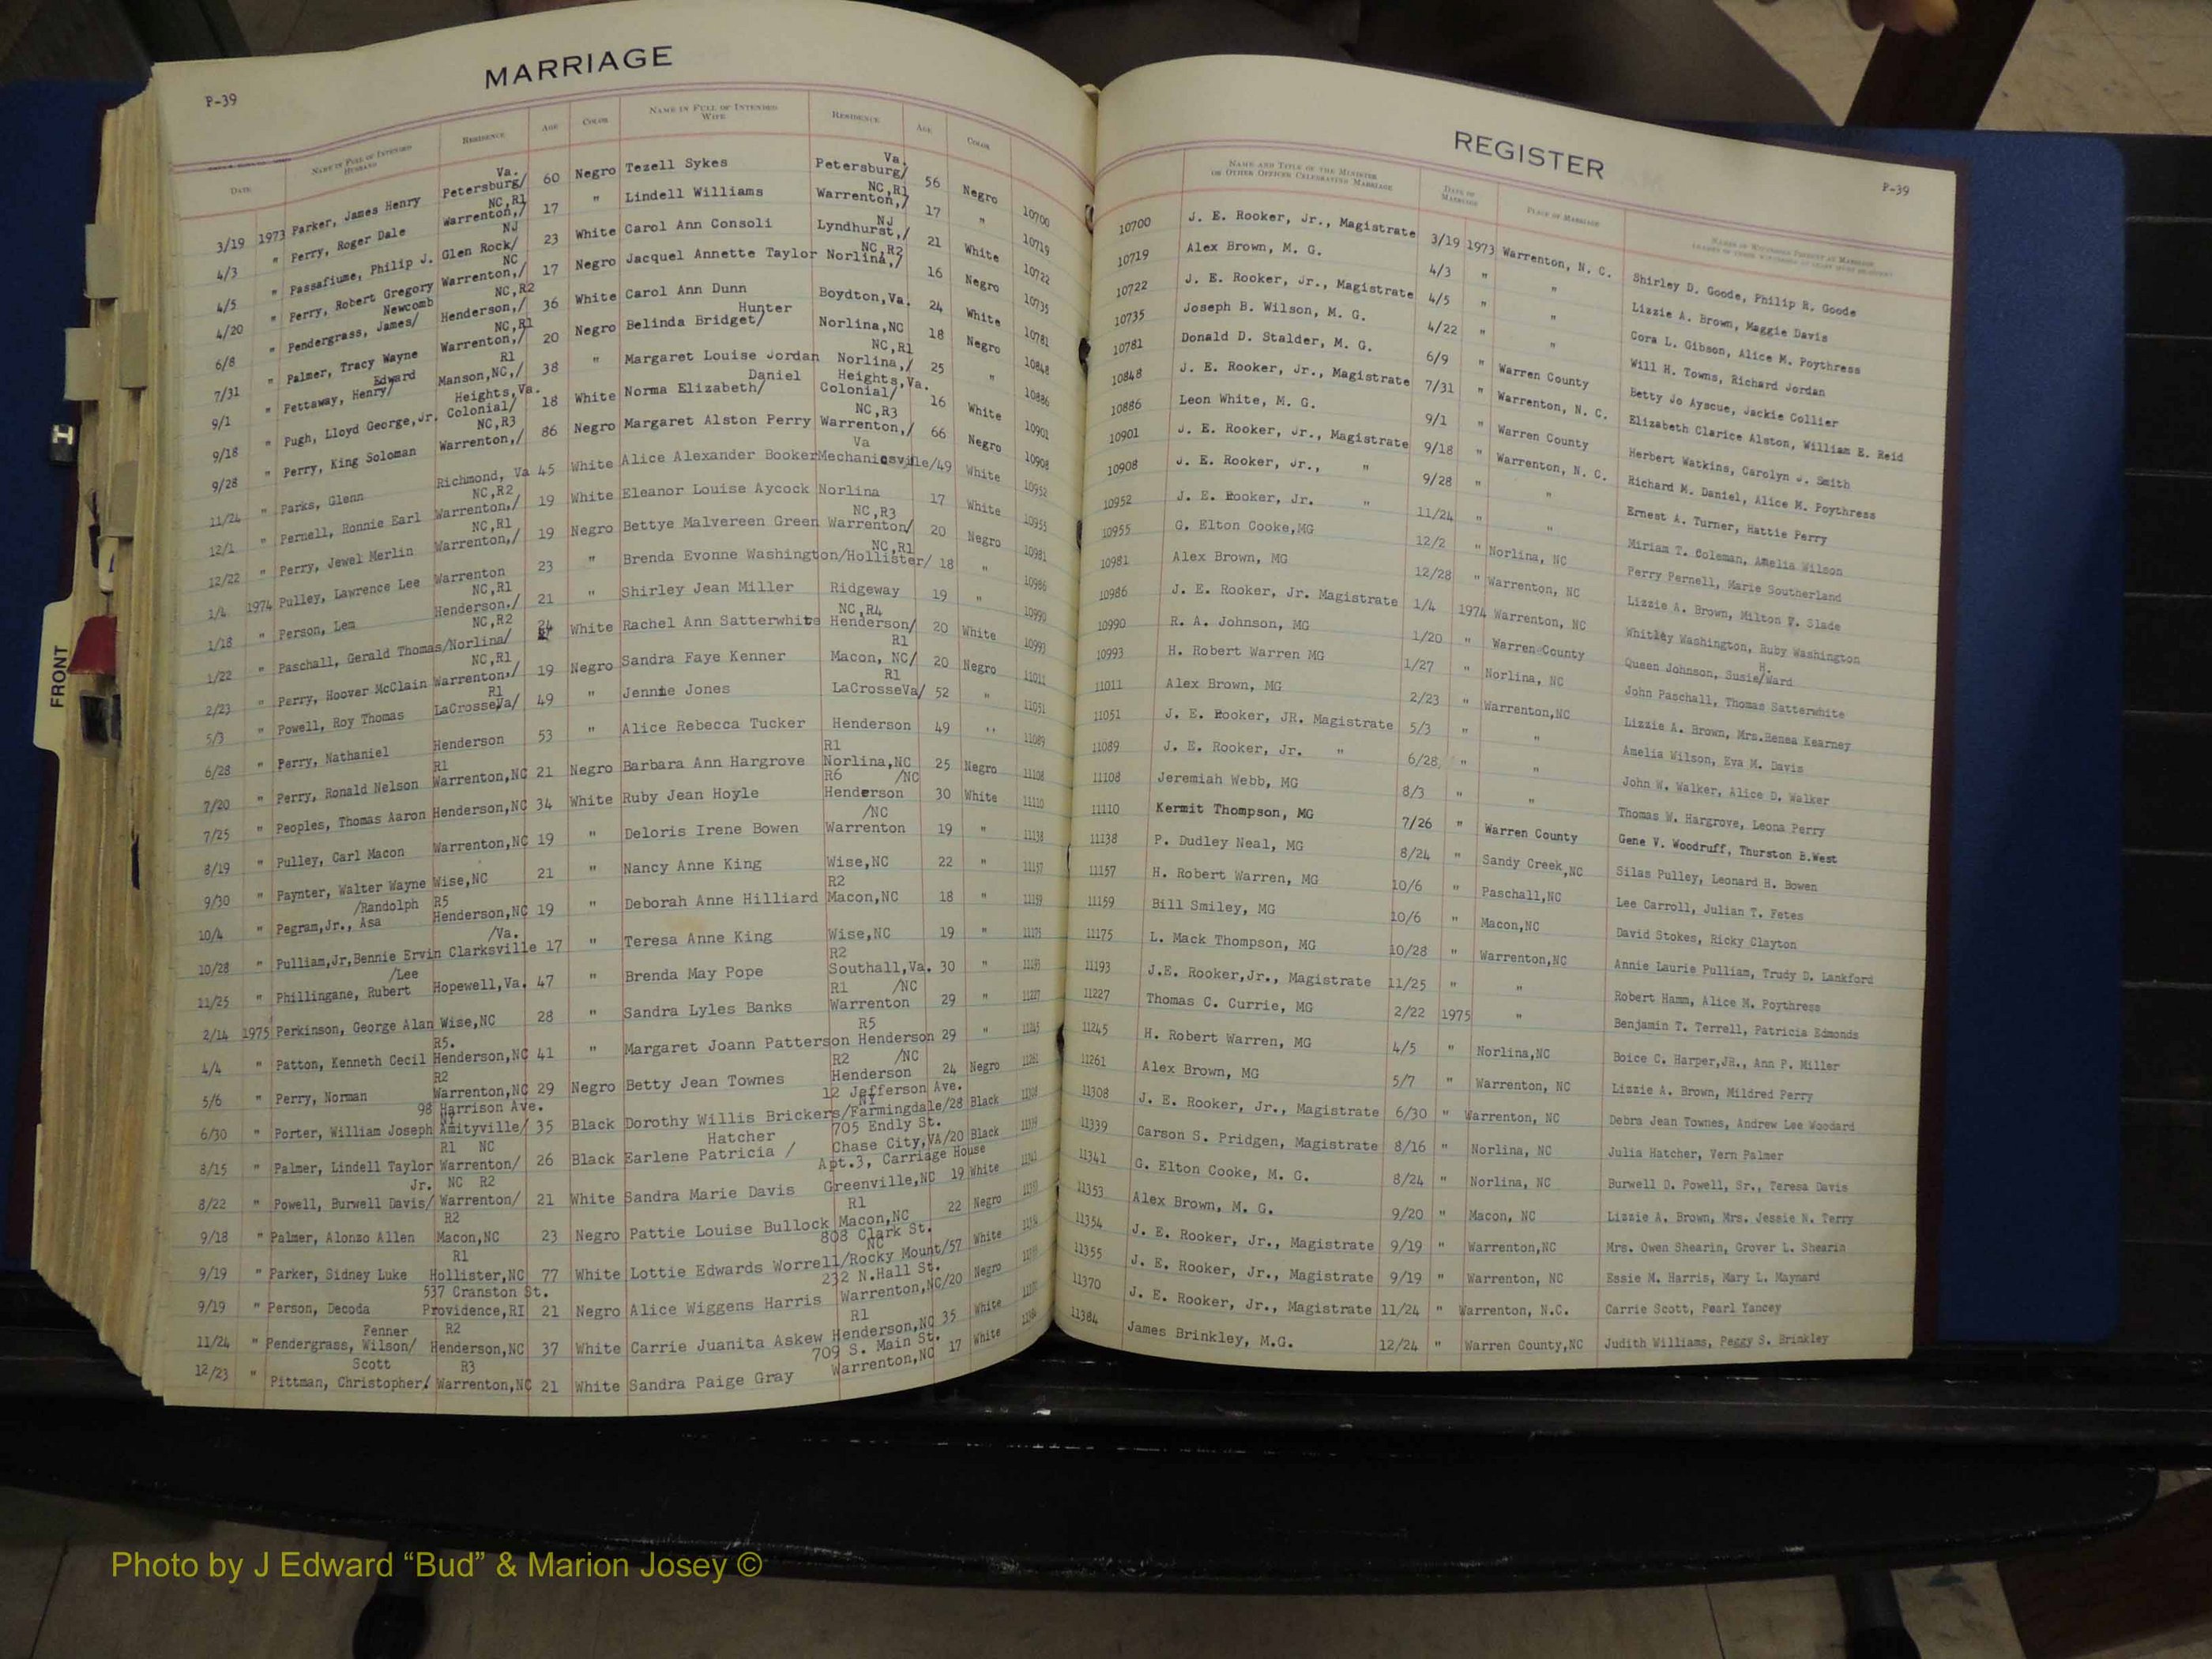 MARRIAGE
P-39
DATE NAME IN FULL OF INTENDED HUSBAND RESIDENCE AGE COLOR NAME IN FULL OF INTENDED WIFE RESIDENCE AGE COLOR
3/19 1973 Parker, James Henry Petersburg/ Va. 60 Negro Tezell Sykes Petersburg/ Va. 56 Negro 10700
4/3 " Perry, Roger Dale Warrenton,/ NC,R1 17 " Lindell Williams Warrenton,/ NC,R1 17 " 10719
4/5 " Passafiume, Philip J. Glen Rock/ NJ 23 White Carol Ann Consoli Lyndhurst,/ NJ 21 White 10722
4/20 " Perry, Robert Gregory Warrenton,/ NC 17 Negro Jacquel Annette Taylor Norlina,/ NC,R2 16 Negro 10735
6/8 " Pendergrass, James/ Newcomb Henderson,/ NC,R2 36 White Carol Ann Dunn Boydton,Va. 24 White 10781
7/31 " Palmer, Tracy Wayne Warrenton,/ NC,R1 20 Negro Belinda Bridget/ Hunter Norlina,NC 18 Negro 10848
9/1 " Pettaway, Henry/ Edward Manson,NC,/ R1 38 " Margaret Louise Jordan Norlina,/ NC,R1 25 " 10886
9/18 " Pugh, Lloyd George,Jr. Colonial/ Heights,Va. 18 White Norma Elizabeth/ Daniel Colonial/ Heights,Va. 16 White 10901
9/28 " Perry, King Soloman Warrenton,/ NC,R3 86 Negro Margaret Alston Perry Warrenton,/ NC,R3 66 Negro 10908
11/24 " Parks, Glenn Richmond, Va 45 White Alice Alexander Booker Mechanicsville/ Va 49 White 10952
12/1 " Pernell, Ronnie Earl Warrenton,/ NC,R2 19 White Eleanor Louise Aycock Norlina 17 White 10955
12/22 " Perry, Jewel Merlin Warrenton,/ NC,R1 19 Negro Bettye Malvereen Green Warrenton/ NC,R3 20 Negro 10981
1/4 1974 Pulley, Lawrence Lee Warrenton 23 " Brenda Evonne Washington/Hollister/ NC,R1 18 " 10986
1/18 " Person, Lem Henderson./ NC,R1 21 " Shirley Jean Miller Ridgeway 19 " 10990
1/22 " Paschall, Gerald Thomas/Norlina/ NC,R2 24 White Rachel Ann Satterwhite Henderson/ NC,R4 20 White 10993
2/23 " Perry, Hoover McClain Warrenton,/ NC,R1 19 Negro Sandra Faye Kenner Macon, NC/ R1 20 Negro 11011
5/3 " Powell, Roy Thomas LaCrosse,Va/ R1 49 " Jennie Jones LaCrosseVa/ R1 52 " 11051
6/28 " Perry, Nathaniel Henderson 53 " Alice Rebecca Tucker Henderson 49 " 11089
7/20 " Perry, Ronald Nelson R1 Warrenton,NC 21 Negro Barbara Ann Hargrove R1 Norlina,NC 25 Negro 11108
7/25 " Peoples, Thomas Aaron Henderson,NC 34 White Ruby Jean Hoyle R6 /NC Henderson 30 White 11110
8/19 " Pulley, Carl Macon Warrenton,NC 19 " Deloris Irene Bowen /NC Warrenton 19 " 11138
9/30 " Paynter, Walter Wayne Wise,NC 21 " Nancy Anne King Wise,NC 22 " 11157
10/4 " Pegram,Jr., Asa /Randolph R5 Henderson,NC 19 " Deborah Anne Hilliard R2 Macon,NC 18 " 11159
10/28 " Pulliam,Jr,Bennie Ervin Clarksville /Va. 17 " Teresa Anne King Wise,NC 19 " 11175
11/25 " Phillingane, Rubert /Lee Hopewell,Va. 47 " Brenda May Pope R2 Southall,Va. 30 " 11193
2/14 1975 Perkinson, George Alan Wise,NC 28 " Sandra Lyles Banks R1 /NC Warrenton 29 " 11227
4/4 " Patton, Kenneth Cecil R5. Henderson,NC 41 " Margaret Joann Patterson R5 Henderson 29 " 11245
5/6 " Perry, Norman R2 Warrenton,NC 29 Negro Betty Jean Townes R2 /NC Henderson 24 Negro 11261
6/30 " Porter, William Joseph 98 Harrison Ave. NY Amityville/ 35 Black Dorothy Willis Brickers/ 12 Jefferson Ave. NY Farmingdale/28 Black 11308
8/15 " Palmer, Lindell Taylor R1 NC Warrenton/ 26 Black Earlene Patricia / Hatcher 705 Endly St. Chase City,VA/20 Black 11339
8/22 " Powell, Burwell Davis/ Jr. NC R2 Warrenton/ 21 White Sandra Marie Davis Apt.3, Carriage House Greenville,NC 19 White 11341
9/18 " Palmer, Alonzo Allen R2 Macon,NC 23 Negro Pattie Louise Bullock R1 Macon,NC 22 Negro 11353
9/19 " Parker, Sidney Luke R1 Hollister,NC 77 White Lottie Edwards Worrell/ 808 Clark St. NC Rocky Mount/57 White 11354
9/19 " Person, Decoda 537 Cranston St. Providence,RI 21 Negro Alice Wiggens Harris 232 N.Hall St. Warrenton,NC/20 Negro 11355
11/24 " Pendergrass, Wilson/ Fenner R2 Henderson,NC 37 White Carrie Juanita Askew R1 Henderson,NC 35 White 11370
12/23 " Pittman, Christopher/ Scott R3 Warrenton,NC 21 White Sandra Paige Gray 709 S. Main St. Warrenton,NC 17 White 11384
REGISTER
P-39
NAME AND TITLE OF THE MINISTER OR OTHER OFFICER CELEBRATING MARRIAGE DATE OF MARRIAGE PLACE OF MARRIAGE
10700 J. E. Rooker, Jr., Magistrate 3/19 1973 Warrenton, N. C. Shirley D. Goode, Philip R. Goode
10719 Alex Brown, M. G. 4/3 " " Lizzie A. Brown, Maggie Davis
10722 J. E. Rooker, Jr., Magistrate 4/5 " " Cora L. Gibson, Alice M. Poythress
10735 Joseph B. Wilson, M. G. 4/22 " " Will H. Towns, Richard Jordan
10781 Donald D. Stalder, M. G. 6/9 " Warren County Betty Jo Ayscue, Jackie Collier
10848 J. E. Rooker, Jr., Magistrate 7/31 " Warrenton, N. C. Elizabeth Clarice Alston, William E. Reid
10886 Leon White, M. G. 9/1 " Warren County Herbert Watkins, Carolyn J. Smith
10901 J. E. Rooker, Jr., Magistrate 9/18 " Warrenton, N. C. Richard M. Daniel, Alice M. Poythress
10908 J. E. Rooker, Jr., " 9/28 " " Ernest A. Turner, Hattie Perry
10952 J. E. Rooker, Jr. " 11/24 " " Miriam T. Coleman, Amelia Wilson
10955 G. Elton Cooke,MG 12/2 " Norlina, NC Perry Pernell, Marie Southerland
10981 Alex Brown, MG 12/28 " Warrenton, NC Lizzie A. Brown, Milton F. Slade
10986 J. E. Rooker, Jr. Magistrate 1/4 1974 Warrenton, NC Whitley Washington, Ruby Washington
10990 R. A. Johnson, MG 1/20 " Warren County Queen Johnson, Susie/Ward H.
10993 H. Robert Warren MG 1/27 " Norlina, NC John Paschall, Thomas Satterwhite
11011 Alex Brown, MG 2/23 " Warrenton,NC Lizzie A. Brown, Mrs.Renea Kearney
11051 J. E. Rooker, JR. Magistrate 5/3 " " Amelia Wilson, Eva M. Davis
11089 J. E. Rooker, Jr. " 6/28 " " John W. Walker, Alice D. Walker
11108 Jeremiah Webb, MG 8/3 " " Thomas W. Hargrove, Leona Perry
11110 Kermit Thompson, MG 7/26 " Warren County Gene V. Woodruff, Thurston B.West
11138 P. Dudley Neal, MG 8/24 " Sandy Creek,NC Silas Pulley, Leonard H. Bowen
11157 H. Robert Warren, MG 10/6 " Paschall,NC Lee Carroll, Julian T. Fetes
11159 Bill Smiley, MG 10/6 " Macon,NC David Stokes, Ricky Clayton
11175 L. Mack Thompson, MG 10/28 " Warrenton,NC Annie Laurie Pulliam, Trudy D. Lankford
11193 J.E. Rooker,Jr., Magistrate 11/25 " " Robert Hamm, Alice M. Poythress
11227 Thomas C. Currie, MG 2/22 1975 " Benjamin T. Terrell, Patricia Edmonds
11245 H. Robert Warren, MG 4/5 " Norlina,NC Boice C. Harper,JR., Ann P. Miller
11261 Alex Brown, MG 5/7 " Warrenton, NC Lizzie A. Brown, Mildred Perry
11308 J. E. Rooker, Jr., Magistrate 6/30 " Warrenton, NC Debra Jean Townes, Andrew Lee Woodard
11339 Carson S. Pridgen, Magistrate 8/16 " Norlina, NC Julia Hatcher, Vern Palmer
11341 G. Elton Cooke, M. G. 8/24 " Norlina, NC Burwell D. Powell, Sr., Teresa Davis
11353 Alex Brown, M. G. 9/20 " Macon, NC Lizzie A. Brown, Mrs. Jessie N. Terry
11354 J. E. Rooker, Jr., Magistrate 9/19 " Warrenton,NC Mrs. Owen Shearin, Grover L. Shearin
11355 J. E. Rooker, Jr., Magistrate 9/19 " Warrenton, NC Essie M. Harris, Mary L. Maynard
11370 J. E. Rooker, Jr., Magistrate 11/24 " Warrenton, N.C. Carrie Scott, Pearl Yancey
11384 James Brinkley, M.G. 12/24 " Warren County,NC Judith Williams, Peggy S. Brinkley
FRONT
Photo by J Edward “Bud” & Marion Josey ©